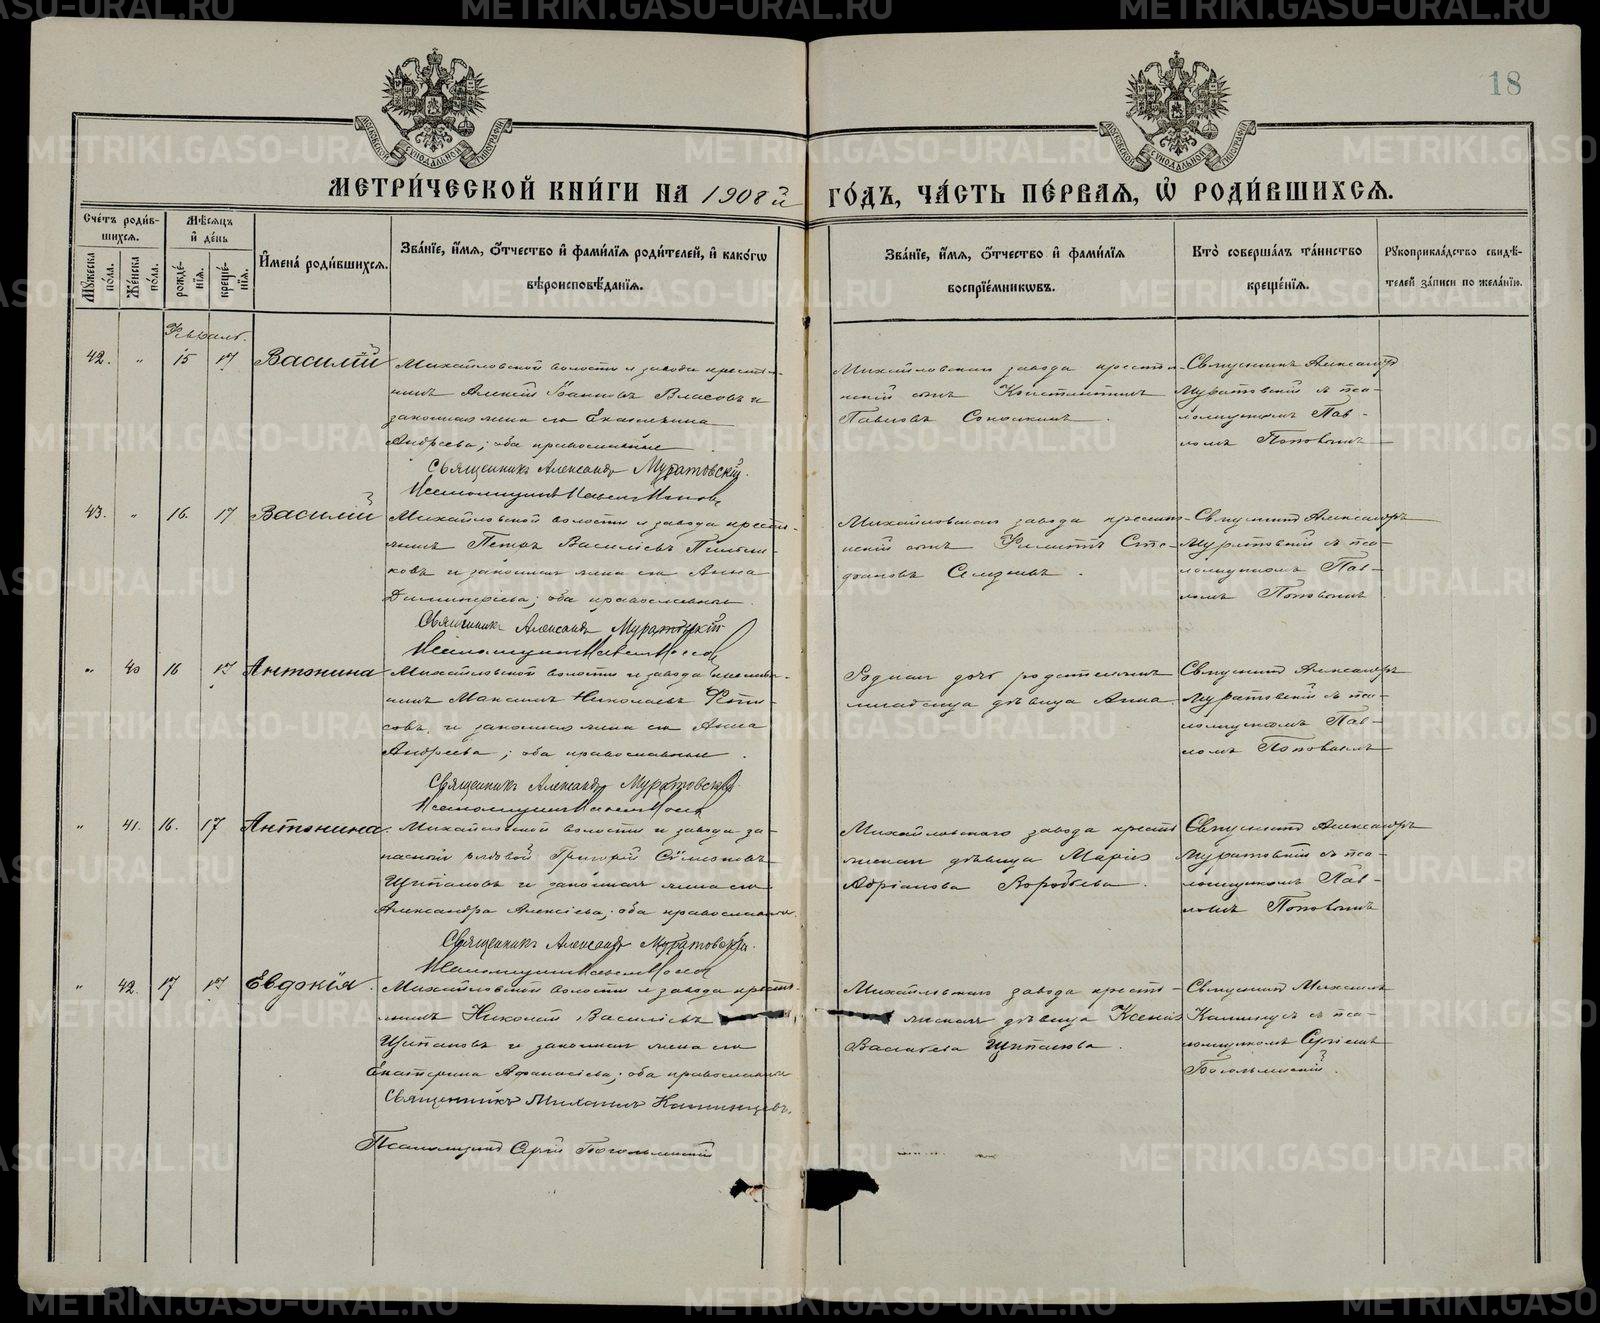 18
МОСКОВСКОЙ СѴНОДАЛЬНОЙ ТИПОГРАФІИ
МОСКОВСКОЙ СѴНОДАЛЬНОЙ ТИПОГРАФІИ
МЕТРИ́ЧЕСКОЙ КНИ́ГИ НА 1908й ГО́ДЪ, ЧА́СТЬ ПЕ́РВАѦ, Ѡ҆ РОДИ́ВШИХСѦ.
Сче́тъ роди́в-
шихсѧ.
Мѣ́сѧцъ
и҆ де́нь
Мꙋ́жеска
по́ла.
Же́нска
по́ла.
рожде́-
нїѧ.
креще́-
нїѧ.
И҆мена̀ роди́вшихсѧ.
Зва́нїе, и҆́мѧ, ѻ҆́тчество и҆ фами́лїѧ роди́телей, и҆ како́гѡ
вѣроисповѣ́данїѧ.
Зва́нїе, и҆́мѧ, ѻ҆́тчество и҆ фами́лїѧ
воспрїе́мникѡвъ.
Кто̀ соверша́лъ та́инство
креще́нїѧ.
Рꙋкоприкла́дство свидѣ́-
телей за́писи по жела́нїю.
Февраль.
42. " 15 17 Василій
Михайловской волости и завода крестья-
нинъ Алексій Іоанновъ Власовъ и
законная жена его Екатерина
Андреева; оба православные
Священникъ Александр Муратовскій.
Псаломщикъ Павелъ Попов
Михайловскаго завода крестья-
нскій сынъ Константинъ
Павловъ
Священникъ Александръ
Муратовскій съ пса-
ломщикомъ Пав-
ломъ Поповымъ
43. " 16. 17 Василій
Михайловской волости и завода кресть-
янинъ Петръ Василіевъ
и законная жена его Анна
Димитріева; оба православные.
Священникъ Александр Муратовскій
Псаломщикъ Павелъ Попов
Михайловскаго завода крестья-
нскій сынъ Филиппъ Сте-
фановъ Селезневъ.
Священникъ Александръ
Муратовскій съ пса-
ломщикомъ Пав-
ломъ Поповымъ
" 40 16 17 Антонина
Михайловской волости и завода крестья-
нинъ Максимъ Николаевъ Фети-
совъ и законная жена его Анна
Андреева; оба православные.
Священникъ Александр Муратовскій
Псаломщикъ Павелъ Попов
Родная дочь родителей
дѣвица Анна.
Священникъ Александръ
Муратовскій съ пса-
ломщикомъ Пав-
ломъ Поповымъ
" 41. 16. 17 Антонина.
Михайловской волости и завода за-
пасный рядовой Григорій Сѵмеоновъ
Щипановъ и законная жена его
Александра Алексіева; оба православные.
Священникъ Александр Муратовскій.
Псаломщикъ Павелъ Попов
Михайловскаго завода кресть-
янская дѣвица Марія
Адріанова Воробьева.
Священникъ Александръ
Муратовскій съ пса-
ломщикомъ Пав-
ломъ Поповымъ
" 42. 17 17 Евдокія.
Михайловской волости и завода кресть-
янинъ Николай Василіевъ
Щипановъ и законная жена его
Екатерина Афанасіева; оба православные
Священникъ Михаилъ Капинцевъ.
Псаломщикъ Сергій Богомолискій
Михайловскаго завода кресть-
янская дѣвица Ксенія
Васильева Щипанова.
Священникъ Михаилъ
съ пса-
ломщикомъ Сергіемъ
METRIKI.GASO-URAL.RU